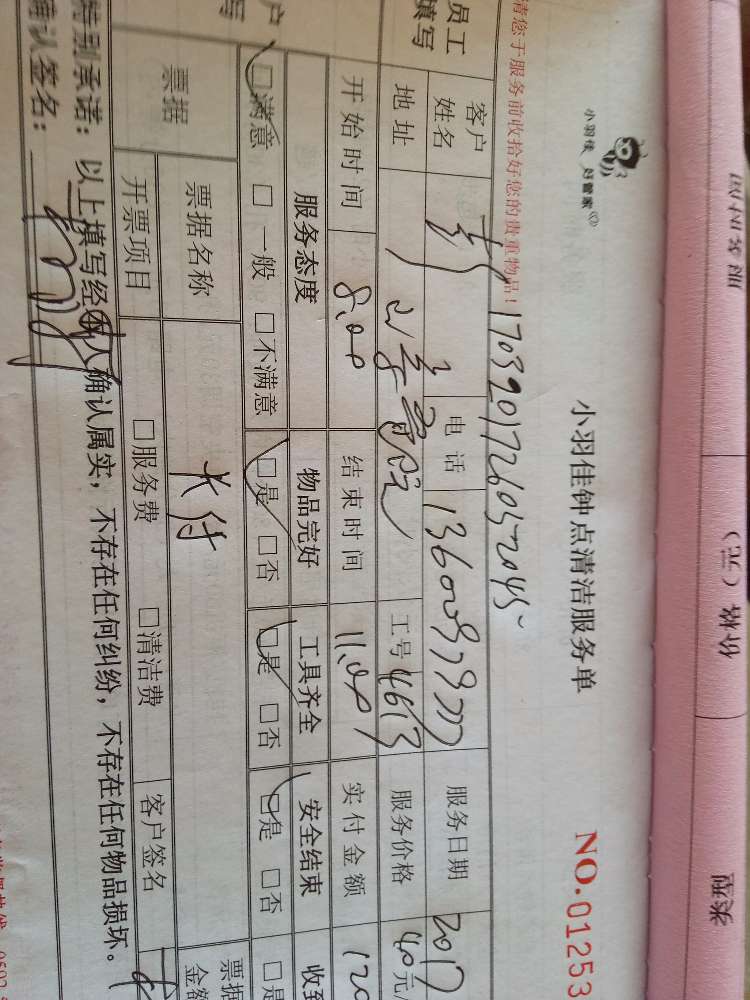 小羽佳 好管家
小羽佳钟点清洁服务单
NO.01253
请您于服务前收拾好您的贵重物品！
1703901726052045
员工填写
客户姓名 电话 服务日期 2017
地址 工号 4613 服务价格 40元/
开始时间 8.00 结束时间 11.00 实付金额 120
户 写
服务态度 物品完好 工具齐全 安全结束 收到
□满意 □一般 □不满意 □是 □否 □是 □否 □是 □否 □是
票据 票据名称 票据金额
开票项目 □服务费 □清洁费 客户签名
特别承诺：以上填写经本人确认属实，不存在任何纠纷，不存在任何物品损坏。
确认签名：
价格（元）